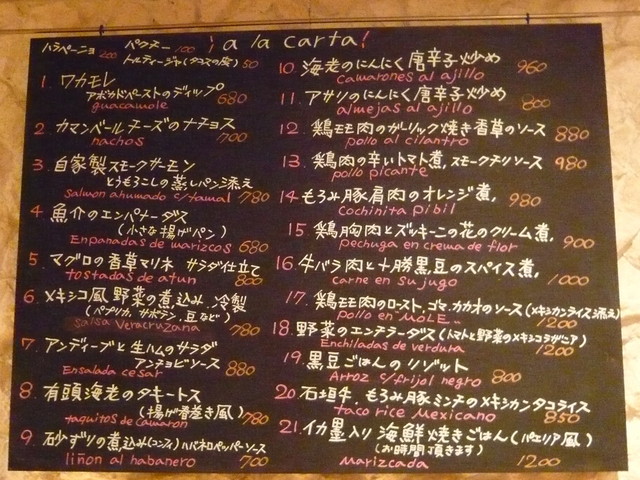 ¡a la carta!
ハラペーニョ 200 パクチー 100
トルティージャ(タコスの皮) 50
1. ワカモレ
アボカドペーストのディップ
guacamole 680
2 カマンベールチーズのナチョス
nachos 700
3 自家製スモークサーモン
とうもろこしの蒸しパン添え
Salmon ahumado c/tamal 780
4 魚介のエンパナーダス
(小さな揚げパン)
Enpanadas de marizcos 680
5 マグロの香草マリネ サラダ仕立て
tostadas de atun 800
6 メキシコ風 野菜の煮込み、冷製
(パプリカ、サボテン、豆など)
salsa veracruzana 780
7 アンディーブと生ハムのサラダ
アンチョビソース
Ensalada cesar 880
8 有頭海老のタキートス
(揚げ春巻き風)
taquitos de camaron 780
9 砂ずりの煮込み(コンフィ)ハバネロペッパーソース
liñon al habanero 700
10. 海老のにんにく唐辛子炒め
Camarones al ajillo 960
11. アサリのにんにく唐辛子炒め
almejas al ajillo 800
12 鶏モモ肉のガーリック焼き香草のソース
pollo al cilantro 880
13. 鶏肉の辛いトマト煮、スモークチリソース
pollo picante 980
14 もろみ豚肩肉のオレンジ煮、
Cochinita pibil 980
15 鶏胸肉とズッキーニの花のクリーム煮、
pechuga en crema de flor 900
16. 牛バラ肉と十勝黒豆のスパイス煮、
carne en su jugo 1000
17. 鶏モモ肉のロースト、ゴマ、カカオのソース(メキシカンライス添え)
pollo en "MOLE" 1200
18. 野菜のエンチラーダス(トマトと野菜のメキシコラザニア)
Enchiladas de verdura 1200
19 黒豆ごはんのリゾット
Arroz c/frijol negro 800
20. 石垣牛、もろみ豚ミンチのメキシカンタコライス
taco rice Mexicano 850
21. イカ墨入り 海鮮焼きごはん(パエリア風)
(お時間頂きます)
Marizcada 1200